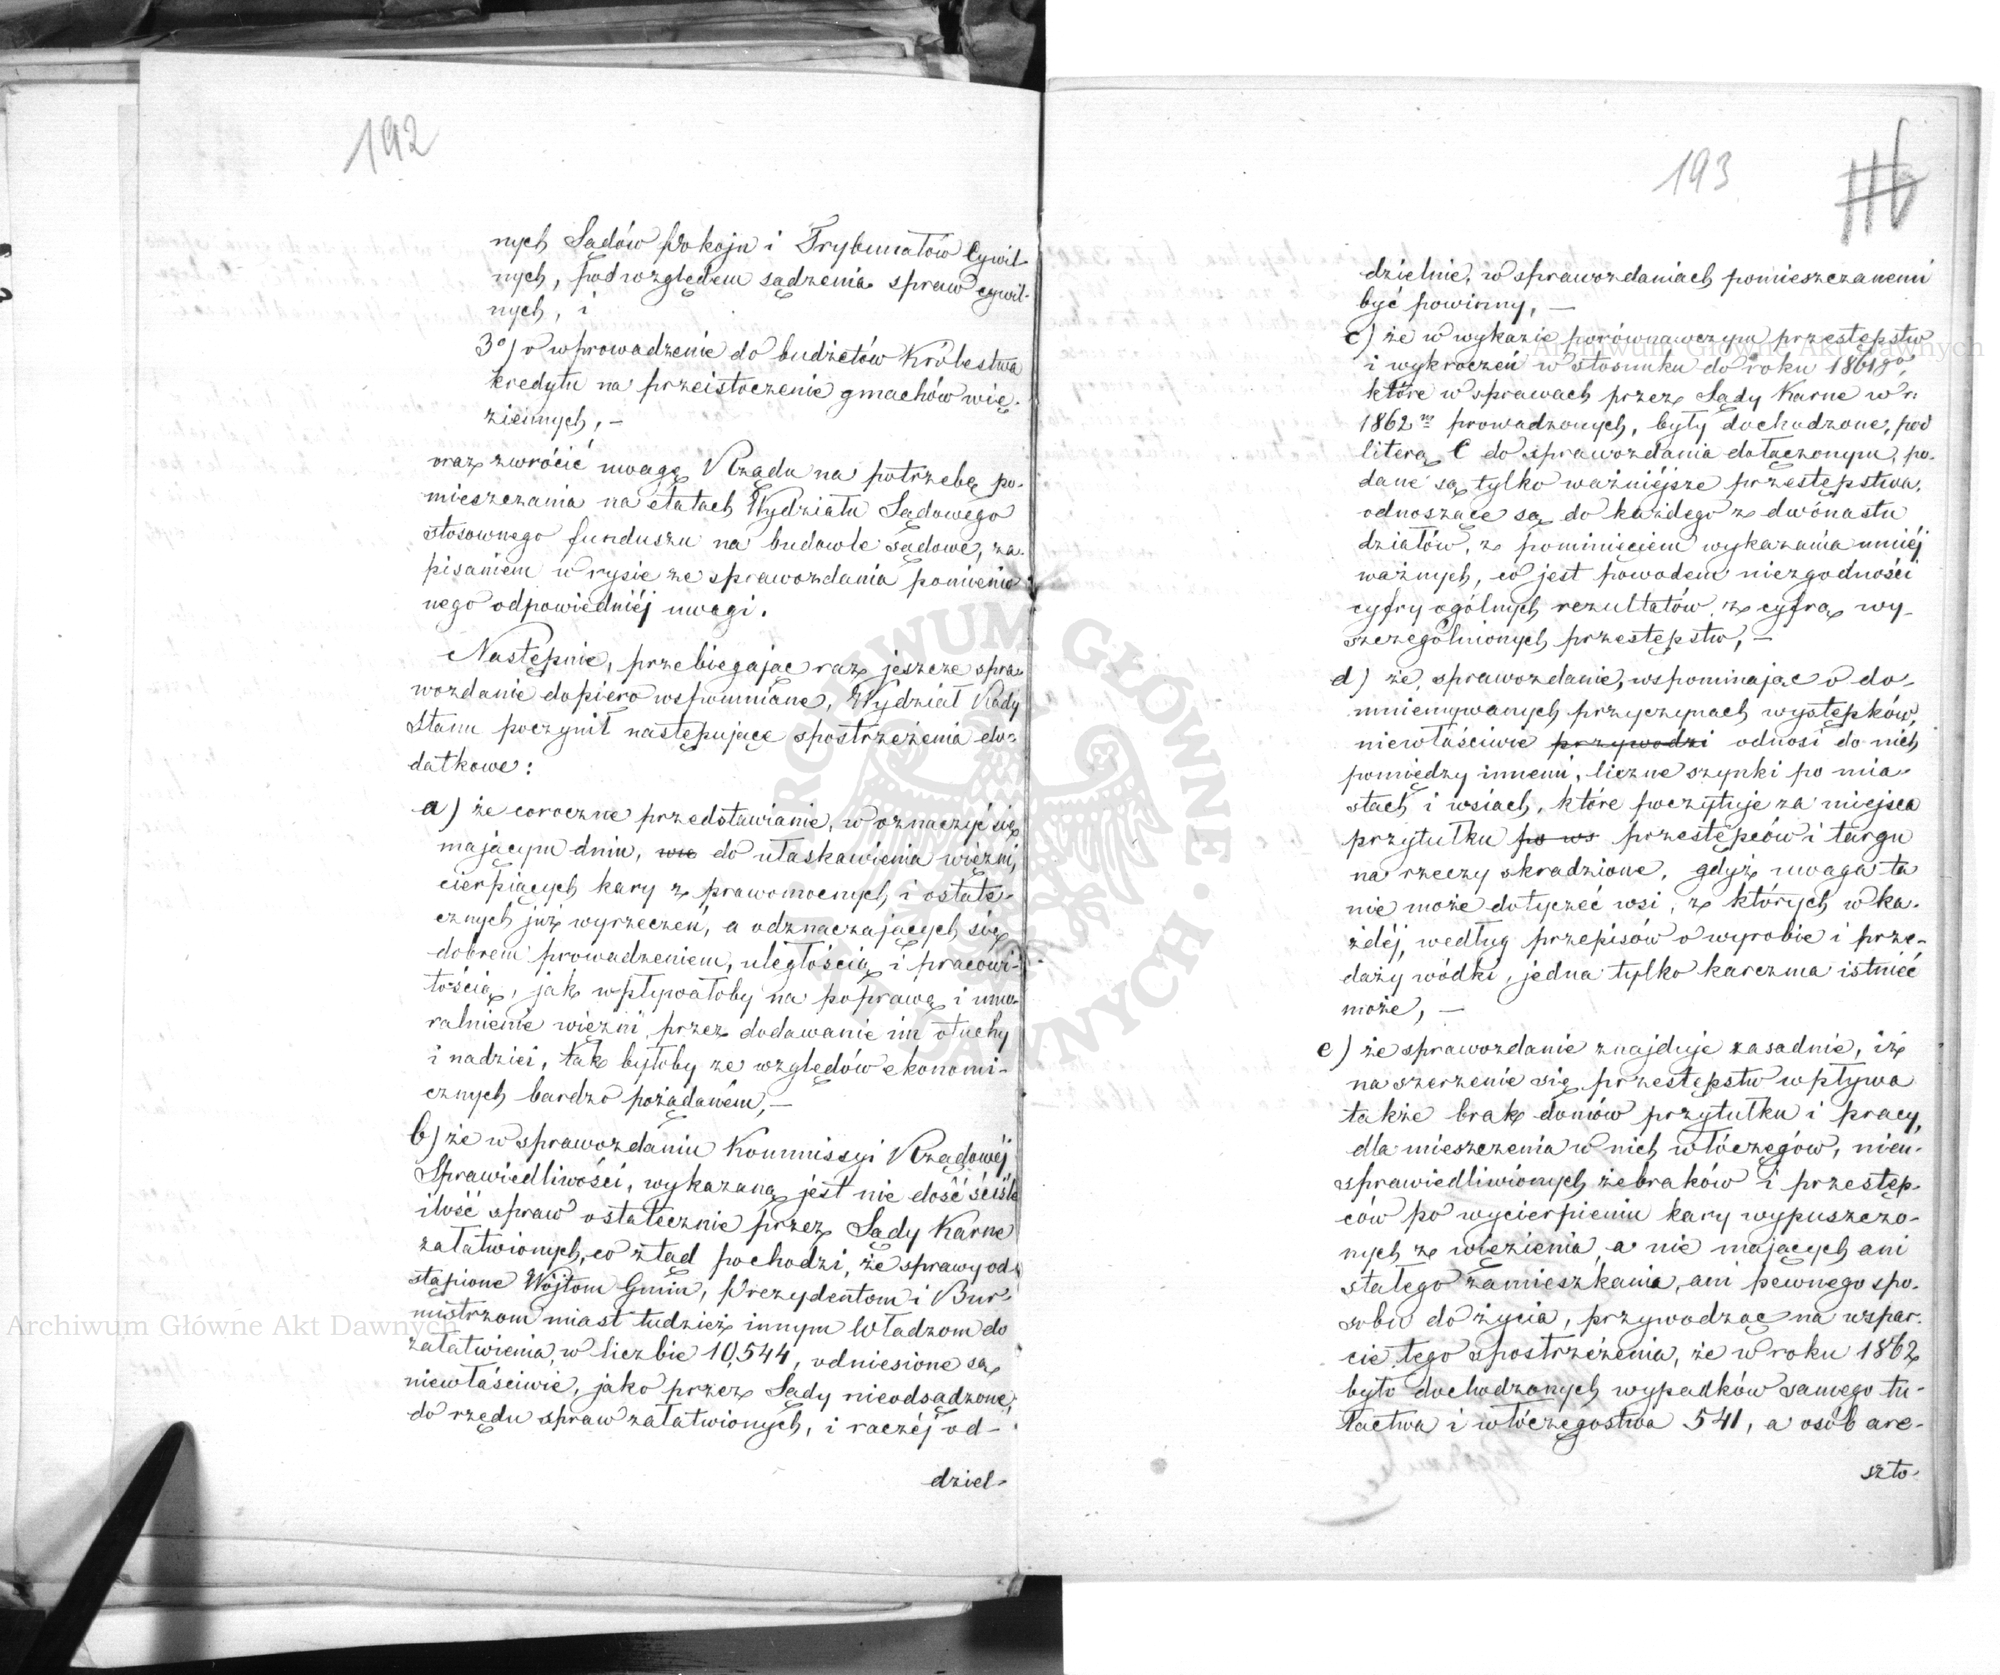 192
nych Sądów Pokoju i Trybunałów Cywil-
nych, pod względem sądzenia spraw cywil-
nych, i
3º) o wprowadzenie do budżetów Królestwa
kredytu na przeistoczenie gmachów wię-
ziennych, —
oraz zwrócić uwagę Rządu na potrzebę po-
mieszczania na etatach Wydziału Sądowego
stosownego funduszu na budowle sądowe, za-
pisaniem w rysie ze sprawozdania pomienio-
nego odpowiedniéj uwagi.
Następnie, przebiegając raz jeszcze spra-
wozdanie dopiero wspomniane, Wydział Rady
Stanu poczynił następujące spostrzeżenia do-
datkowe:
a) że coroczne przedstawianie, w oznaczyć się
mającym dniu, wię do ułaskawienia więźni,
cierpiących kary z prawomocnych i ostate-
cznych już wyrzeczeń, a odznaczających się
dobrem prowadzeniem, uległością i pracowi-
tością, jak wpływałoby na poprawę i umo-
ralnienie więźni przez dodawanie im otuchy
i nadziei, tak byłoby ze względów ekonomi-
cznych bardzo pożądaném, —
b) że w sprawozdaniu Kommissyi Rządowéj
Sprawiedliwości, wykazaną jest nie dość ściśle
ilość spraw ostatecznie przez Sądy Karne
załatwionych, co ztąd pochodzi, że sprawy od-
stąpione Wójtom Gmin, Prezydentom i Bur-
mistrzom miast tudzież innym Władzom do
załatwienia, w liczbie 10,544, odniesione są
niewłaściwie, jako przez Sądy nieodsądzone,
do rzędu spraw załatwionych, i raczéj od-
dziel-
193
116
dzielnie, w sprawozdaniach pomieszczanemi
być powinny, —
c) że w wykazie porównawczym przestępstw
i wykroczeń w stosunku do roku 1861go,
które w sprawach przez Sądy Karne w r:
1862m prowadzonych, były dochodzone, pod
literą C do sprawozdania dołączonym, po-
dane są tylko ważniéjsze przestępstwa,
odnoszące są do każdego z dwónastu
działów, z pominięciem wykazania mniéj
ważnych, co jest powodem niezgodności
cyfry ogólnych rezultatów, z cyfrą wy-
szczególnionych przestępstw, —
d) że, sprawozdanie, wspominając o do-
mniemywanych przyczynach występków,
niewłaściwie przywodzi odnosi do nich
pomiędzy innemi, liczne szynki po mia-
stach i wsiach, które poczytuje za miejsca
przytułku po ws przestępców i targu
na rzeczy skradzione, gdyż uwaga ta
nie może dotyczéć wsi, z których w ka-
żdéj, według przepisów o wyrobie i prze-
daży wódki, jedna tylko karczma istnieć
może, —
e) że sprawozdanie znajduje zasadnie, iż
na szerzenie się przestępstw wpływa
także brak domów przytułku i pracy,
dla mieszczenia w nich włóczęgów, nieu-
sprawiedliwionych żebraków i przestęp-
ców po wycierpieniu kary wypuszczo-
nych z więzienia, a nie mających ani
stałego zamieszkania, ani pewnego spo-
sobu do życia, przywodząc na wspar-
cie tego spostrzeżenia, że w roku 1862
było dochodzonych wypadków samego tu-
łactwa i włóczęgostwa 541, a osób are-
szto-
Archiwum Główne Akt Dawnych
Archiwum Główne Akt Dawnych
ARCHIWUM GŁÓWNE AKT DAWNYCH